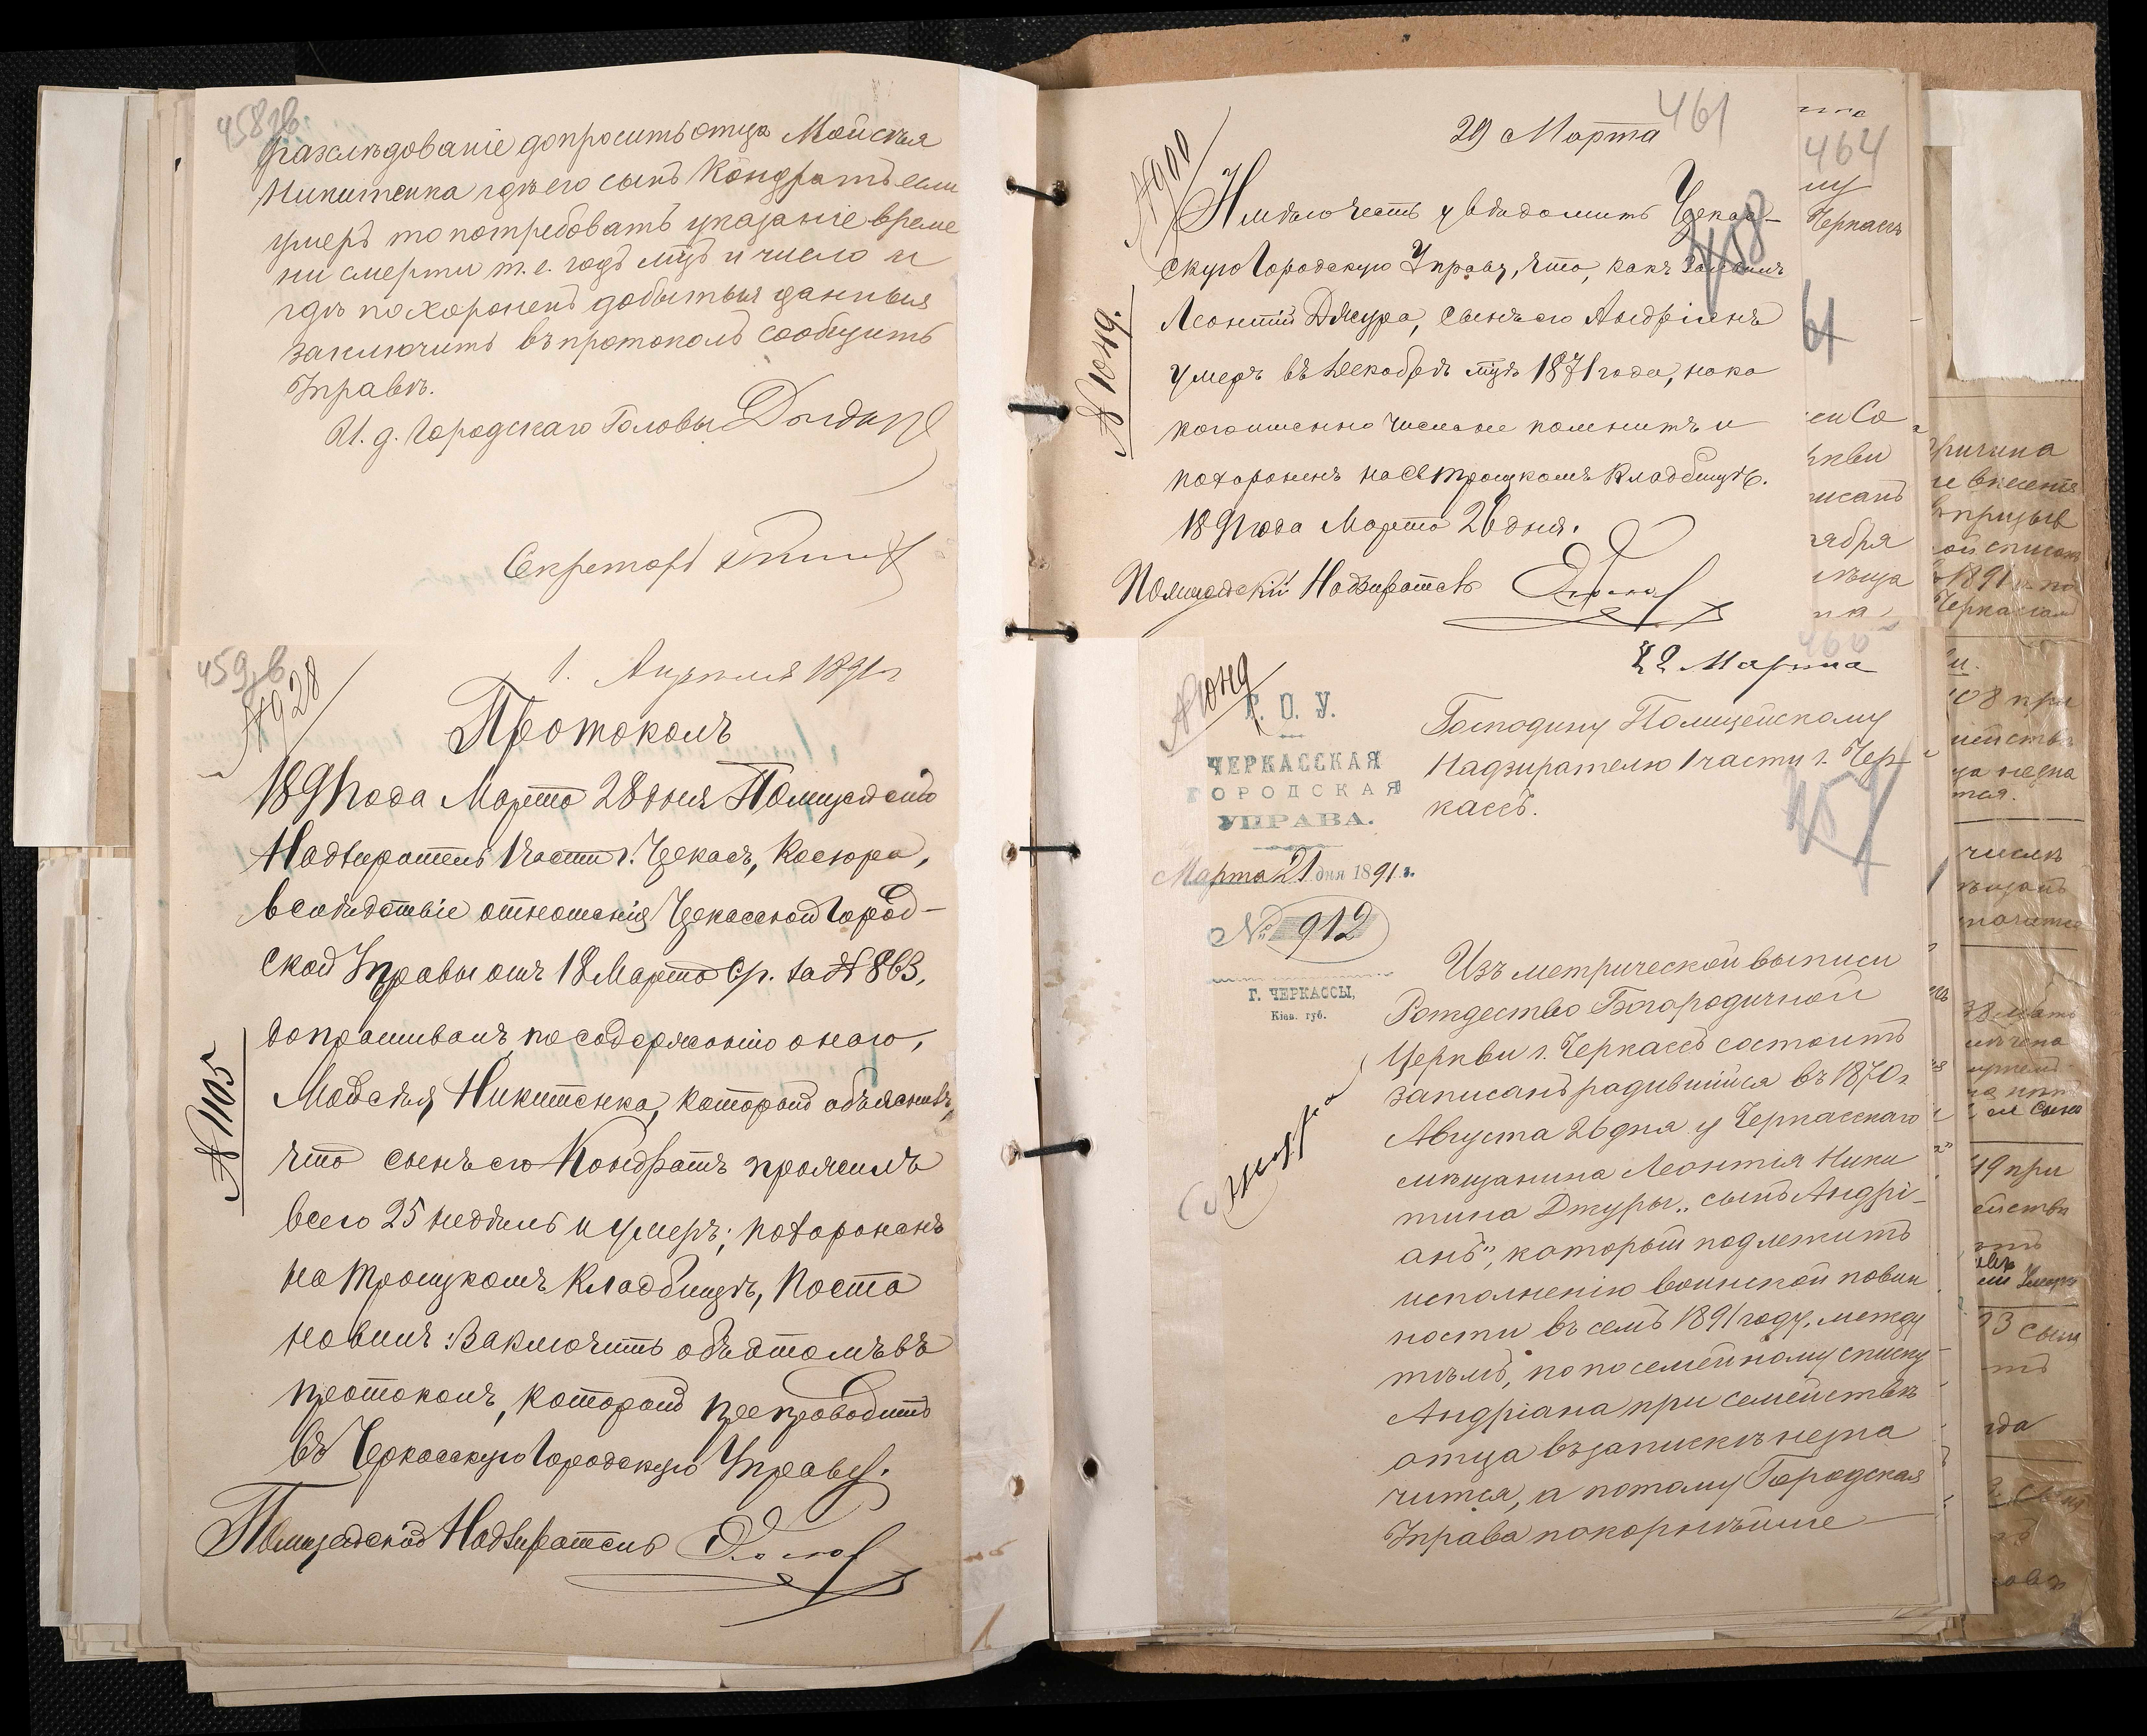 458 об.
разслѣдованіе допросить отца Мойсѣя
Никитенка гдѣ его сынъ Кондратъ если
умеръ то потребовать указаніе време
ни смерти т. е. годъ мѣц. и число и
гдѣ похороненъ добытыя данныя
заключить въ протоколъ сообщить
Управѣ.
И. д. Городскаго Головы
Секретарь
459 об.
№ 928
1. Апреля 1891 г
Протоколъ
1891 года Марта 28 дня Полицейскій
Надзиратель 1 части г. Черкасъ,
вслѣдствіе отношенія Черкасской Город-
ской Управы отъ 18 Марта с/г. за № 863,
допрашивалъ, по содержанію онаго,
Мойсѣя Никитенка, который объяснилъ,
что сынъ его Кондратъ прожилъ
всего 25 недѣль и умеръ; похороненъ
на Троицкомъ Кладбищѣ, Поста
новилъ: Заключить объ этомъ въ
протоколъ, который препроводить
въ Черкасскую Городскую Управу.
Полицейскій Надзиратель
№ 1105
461
29 Марта
№ 900
Имѣю честь увѣдомить Черкас-
скую Городскую Управу, что, какъ заявилъ
Леонтій Джура, сынъ его Андріянъ
умеръ въ Декабрѣ мцѣ 1871 года, но ка
кого именно числа не помнитъ и
похороненъ на Св Троицкомъ Кладбищѣ.
1891 года Марта 26 дня.
Полицейскій Надзиратель
№ 1049.
458
460
22 Марта
№ 1049
Г. О. У.
ЧЕРКАССКАЯ
ГОРОДСКАЯ
УПРАВА.
Марта 21 дня 1891 г.
№ 912
Г. ЧЕРКАССЫ,
Кіев. губ.
Господину Полицейскому
Надзирателю 1 части г. Чер
кассъ.
457
Изъ метрической выписи
Рождество Богородичной
Церкви г. Черкассъ состоитъ
записанъ родившійся въ 1870 г
Августа 26 дня у Черкасскаго
мѣщанина Леонтія Ники
тина Джуры „сынъ Андрі-
анъ", который подлежитъ
исполненію воинской повин
ности въ семъ 1891 году, между
тѣмъ, по посемейному списку
Андріана при семействѣ
отца въ запискѣ не зна
чится, а потому Городская
Управа покорнѣйше
464
Черкасъ
61